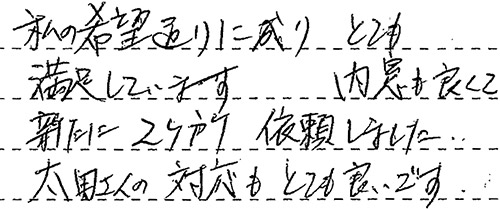 私の希望通りに成り とても
満足しています 内窓も良くて
新たに 2ヶ所 依頼しました..
太田さんの 対応も とても良いです.